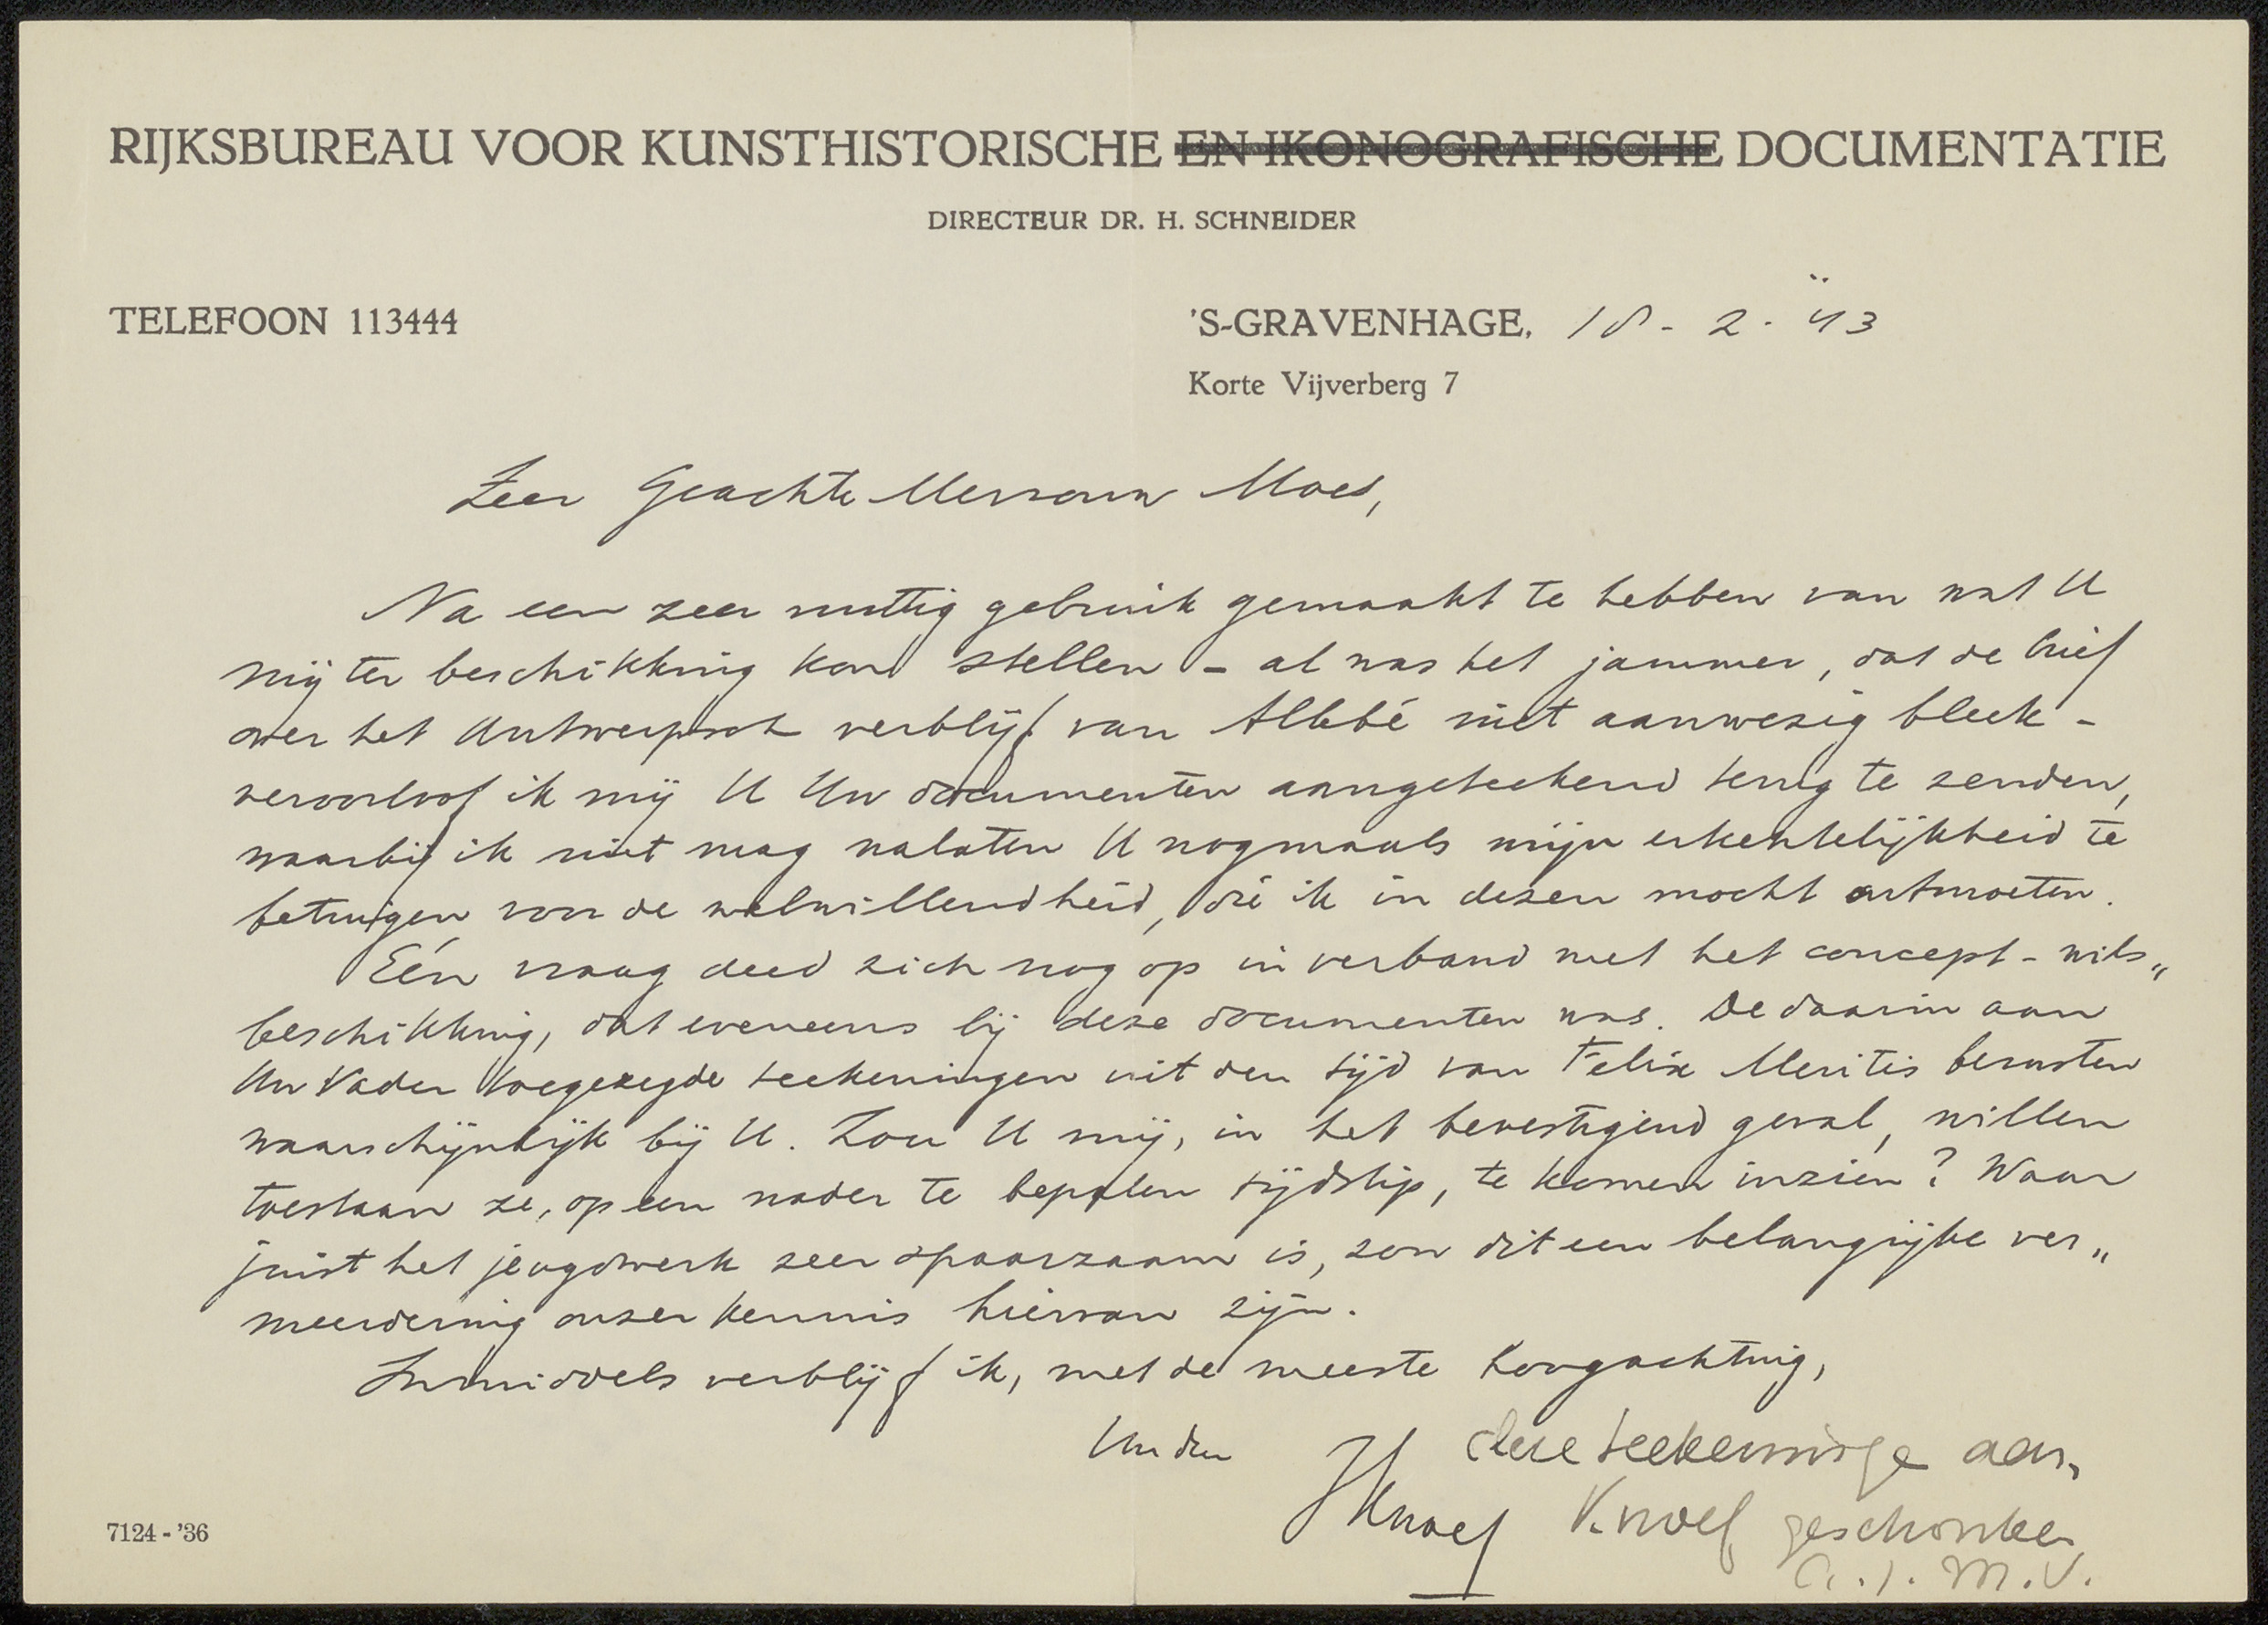 RIJKSBUREAU VOOR KUNSTHISTORISCHE EN IKONOGRAFISCHE DOCUMENTATIE
DIRECTEUR DR. H. SCHNEIDER
TELEFOON 113444
'S-GRAVENHAGE, 18-2-'43
Korte Vijverberg 7
Zeer Geachte Mevrouw Moes,
Na een zeer nuttig gebruik gemaakt te hebben van wat U
mij ter beschikking kon stellen - al was het jammer, dat de brief
over het Antwerpsch verblijf van Allebé niet aanwezig bleek -
veroorloof ik mij U Uw documenten aangeteekend terug te zenden,
waarbij ik niet mag nalaten U nogmaals mijn erkentelijkheid te
betuigen voor de welwillendheid, die ik in dezen mocht ontmoeten.
Eén vraag deed zich nog op in verband met het concept-wils„
beschikking, dat eveneens bij deze documenten was. De daarin aan
Uw Vader toegezegde teekeningen uit den tijd van Felix Meritis berusten
waarschijnlijk bij U. Zou U mij, in het bevestigend geval, willen
toestaan ze, op een nader te bepalen tijdstip, te komen inzien? Waar
juist het jeugdwerk zeer spaarzaam is, zou dit een belangrijke ver„
meerdering onzer kennis hiervan zijn.
Inmiddels verblijf ik, met de meeste hoogachting,
Uw dw
JKnoef
deze teekeninge aan
Knoef geschonken
M.V.
7124-'36